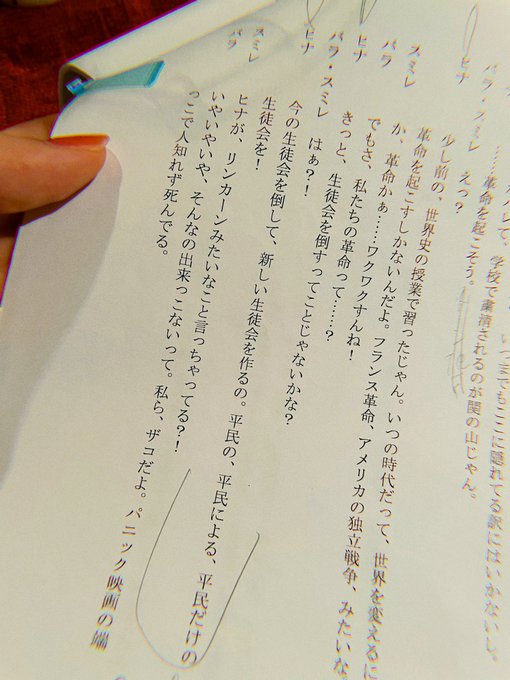 いつまでもここに隠れてる訳にはいかないし。
バレて、学校で粛清されるのが関の山じゃん。
……革命を起こそう。
バラ・スミレ えっ?
ヒナ 少し前の、世界史の授業で習ったじゃん。いつの時代だって、世界を変えるに
革命を起こすしかないんだよ。フランス革命、アメリカの独立戦争、みたいな
スミレ か、革命かぁ……ワクワクすんね!
バラ でもさ、私たちの革命って……?
ヒナ きっと、生徒会を倒すってことじゃないかな?
バラ・スミレ はぁ?!
ヒナ 今の生徒会を倒して、新しい生徒会を作るの。平民の、平民による、平民だけの
生徒会を!
スミレ ヒナが、リンカーンみたいなこと言っちゃってる?!
バラ いやいやいや、そんなの出来っこないって。私ら、ザコだよ。パニック映画の端
っこで人知れず死んでる。